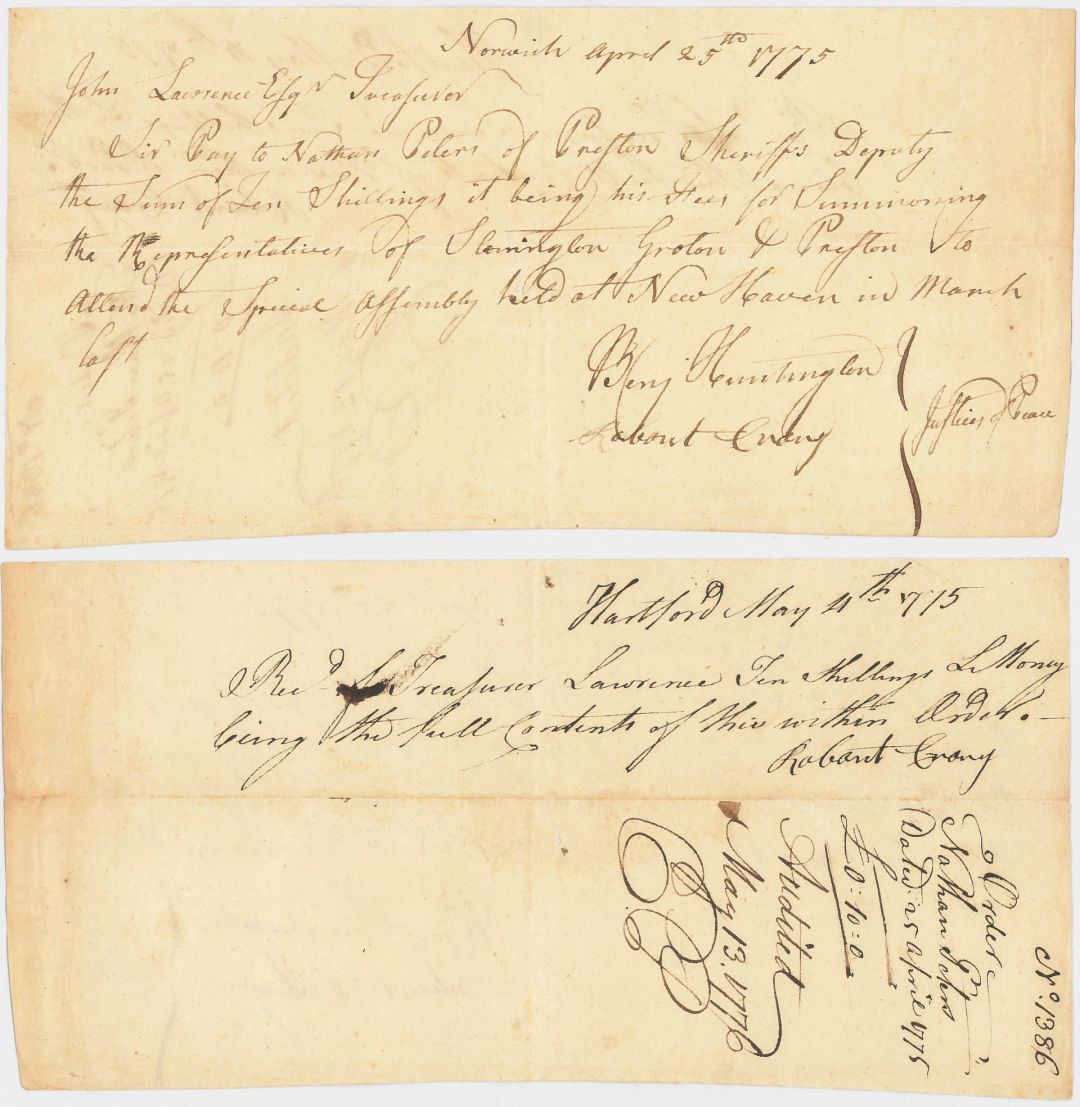 Norwich April 25th 1775
John Lawrence Esqr Treasurer
Sir Pay to Nathan Peters of Preston Sheriffs Deputy
the Sum of Ten Shillings it being his Fees for Summoning
the Representatives of Stonington Groton & Preston to
Attend the Special Assembly held at New Haven in March
last
Benj Huntington
Rabout Crary
Justices of Peace
Hartford May 4th 1775
Recd of Treasurer Lawrence Ten Shillings L Money
being the full Contents of the within Order.
Rabout Crary
No. 1386
Order
Nathan Peters
Dated 25 April 1775
£0:10:0
Audited
May 13, 1776